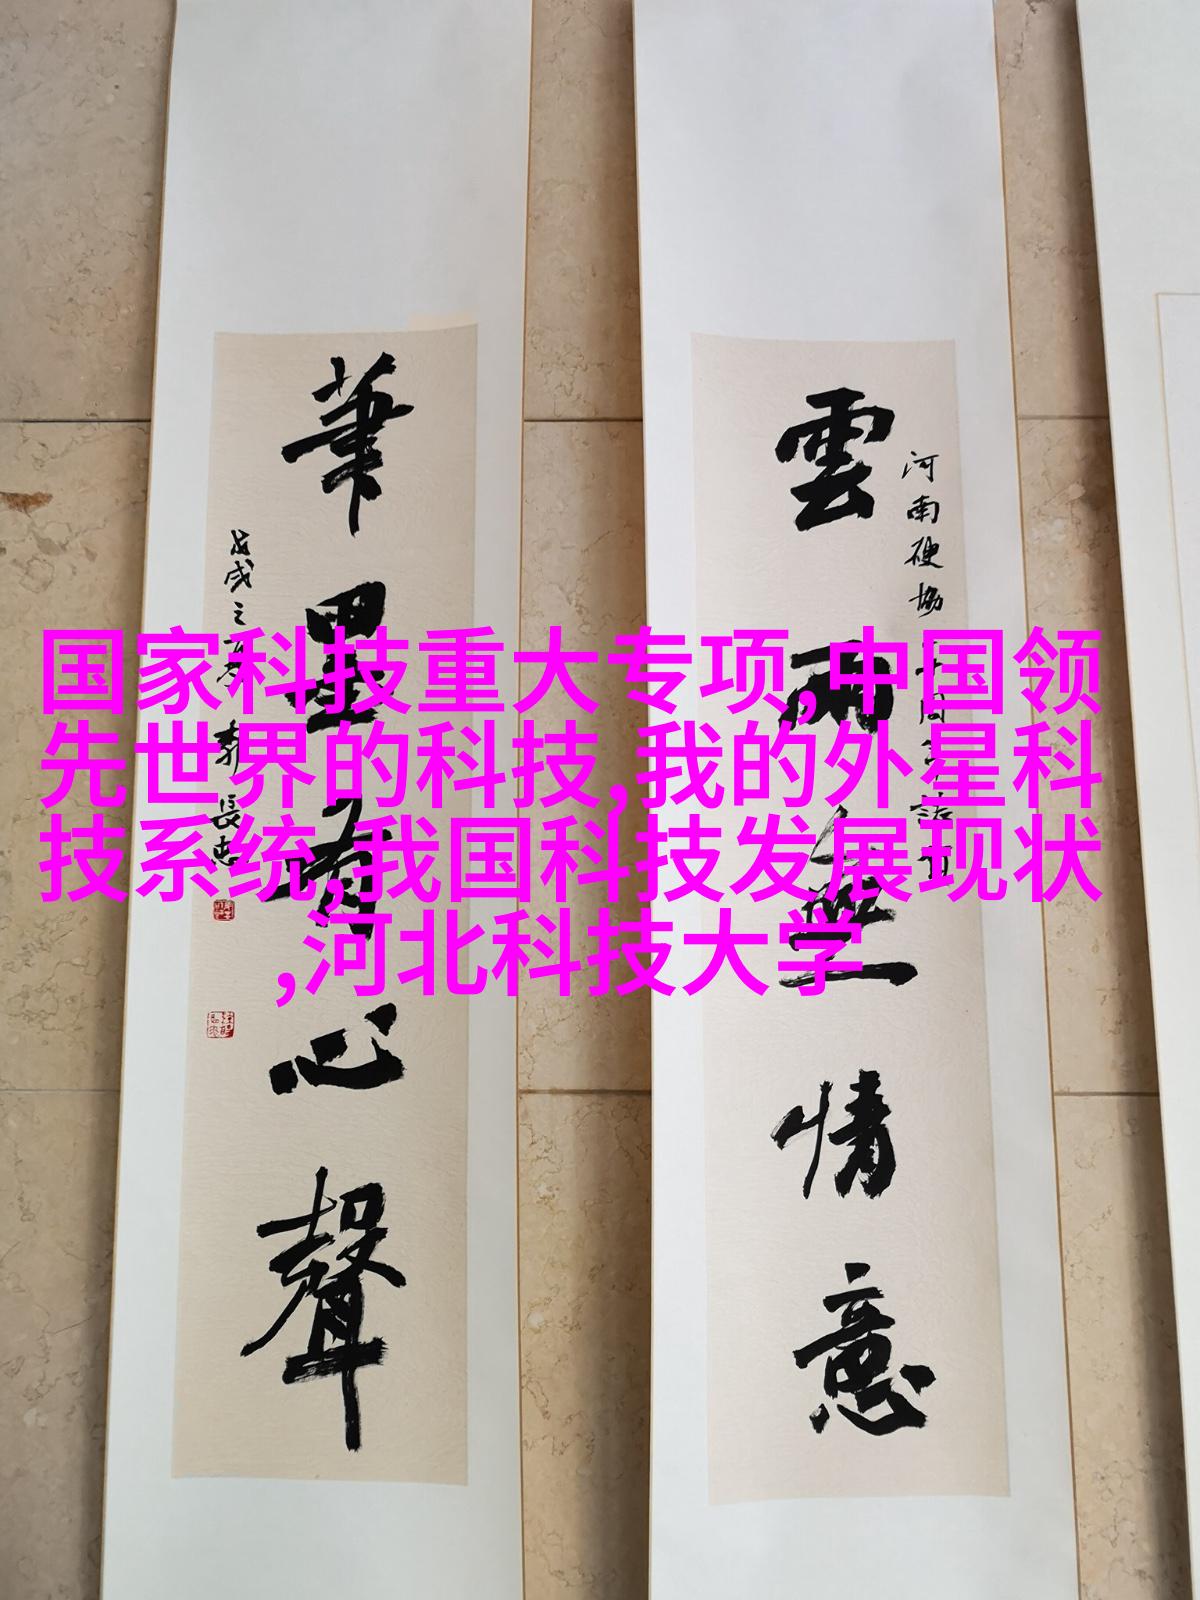 雲雨無情意
河南硬協
筆墨有心聲
戊戌之春郭長志
国家科技重大专项,中国领
先世界的科技,我的外星科
技系统,我国科技发展现状
,河北科技大学